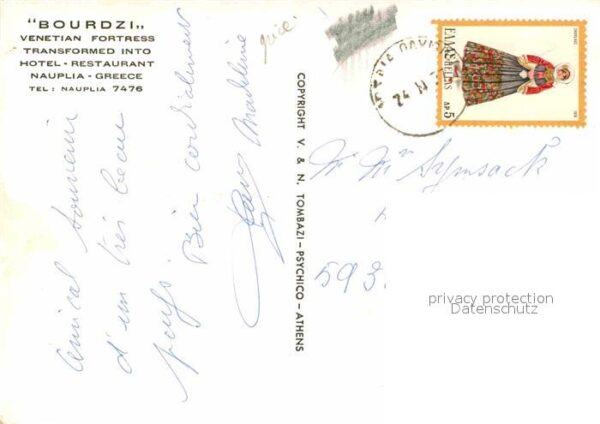 "BOURDZI„
VENETIAN FORTRESS
TRANSFORMED INTO
HOTEL - RESTAURANT
NAUPLIA - GREECE
TEL: NAUPLIA 7476
Amical souvenir
d'un très beau
pays! Bien cordialement
Madeleine
COPYRIGHT V. & N. TOMBAZI - PSYCHICO - ATHENS
24
ΕΛΛΑΣ HELLAS
ΔΡ 5
Mr Mme Szymsack
593
privacy protection
Datenschutz